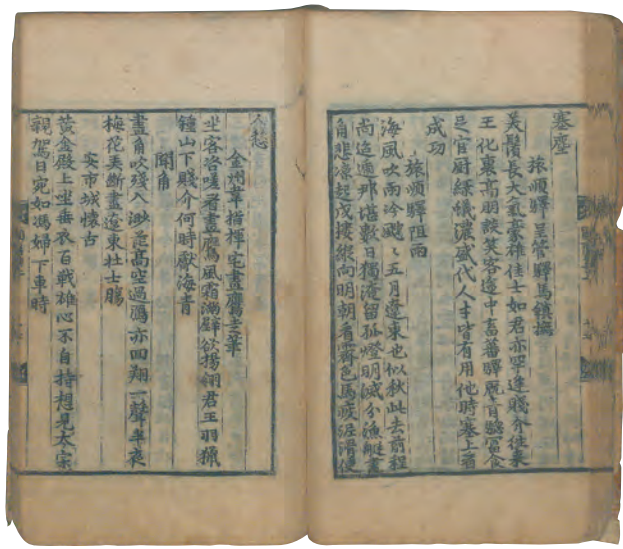 塞塵
旅順驛呈管驛馬鎮撫
美鬚長大氣豪雄佳士如君亦罕逢賤介往來
王化裏高朋談笑客邊中畜蕃驛厩官驂富食
足官厨緑蟻濃盛代人才皆有用他時塞上看
成功
旅順驛阻雨
海風吹雨冷颼颼五月遼東也似秋此去前程
尚迢逓那堪數日獨淹留孤燈明滅分漁艇畫
角悲凉起戍樓縱向明朝看霽色馬疲泥滑使
人愁
金州韋指揮宅畫鷹主筆
坐客咨嗟看畫鷹風霜滿壁欲揚翎君王羽獵
鐘山下賤介何時獻海青
聞角
畫角吹殘入渺茫高空過鴈亦回翔一聲半夜
梅花弄斷盡遼東壮士膓
安市城懷古
黄金殿上坐垂衣百戰雄心不自持想見太宗
親駕日宛如馮婦下車時